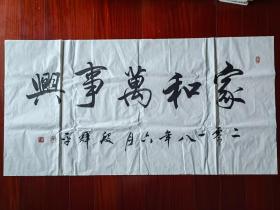 家和萬事興
二零一八年六月段輝